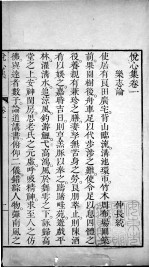 悅心集卷一
樂志論
仲長統
使居有良田廣宅背山臨流溝池環帀竹木周布場圃築
前果園樹後舟車足以代步涉之難使令足以息四體之
役養親有兼珍之膳妻孥無苦身之勞良朋萃止則陳酒
肴以娛之嘉時吉日則烹羔豚以奉之躊躇畦苑遊戲平
林濯清水追涼風釣游鯉弋高鴻諷於舞雩之下詠歸高
堂之上安神閨房思老氏之玄虛呼吸精和求至人之仿
佛與達者數子論道講書俯仰二儀錯綜人物彈南風之
悅心集
卷一